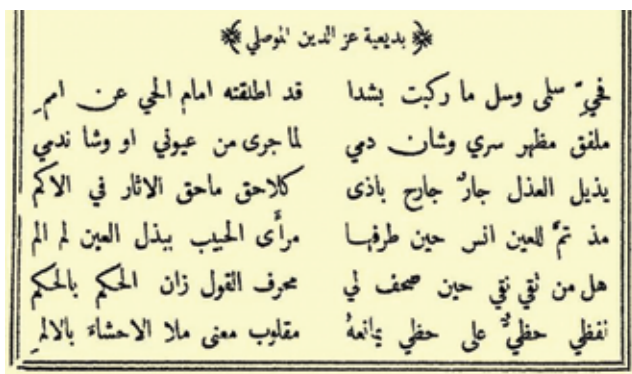 بديعية عز الدين الموصلي
فحيِّ سلمى وسل ما ركبت بشذا قد اطلقته امام الحي عن امم
ملفق مظهر سري وشان دمي لما جرى من عيوني او وشا ندمي
يذيل العذل جارٌ جارح باذى كلاحق ماحق الاثار في الاكم
مذ تمَّ للعين انس حين طرفها مرأى الحبيب ببذل العين لم الم
هل من تقي نقي حين صحف لي محرف القول زان الحكم بالحكم
نفظي حظيٌّ على حظي يمانعهُ مقلوب معنى ملا الاحشاءَ بالالمِ